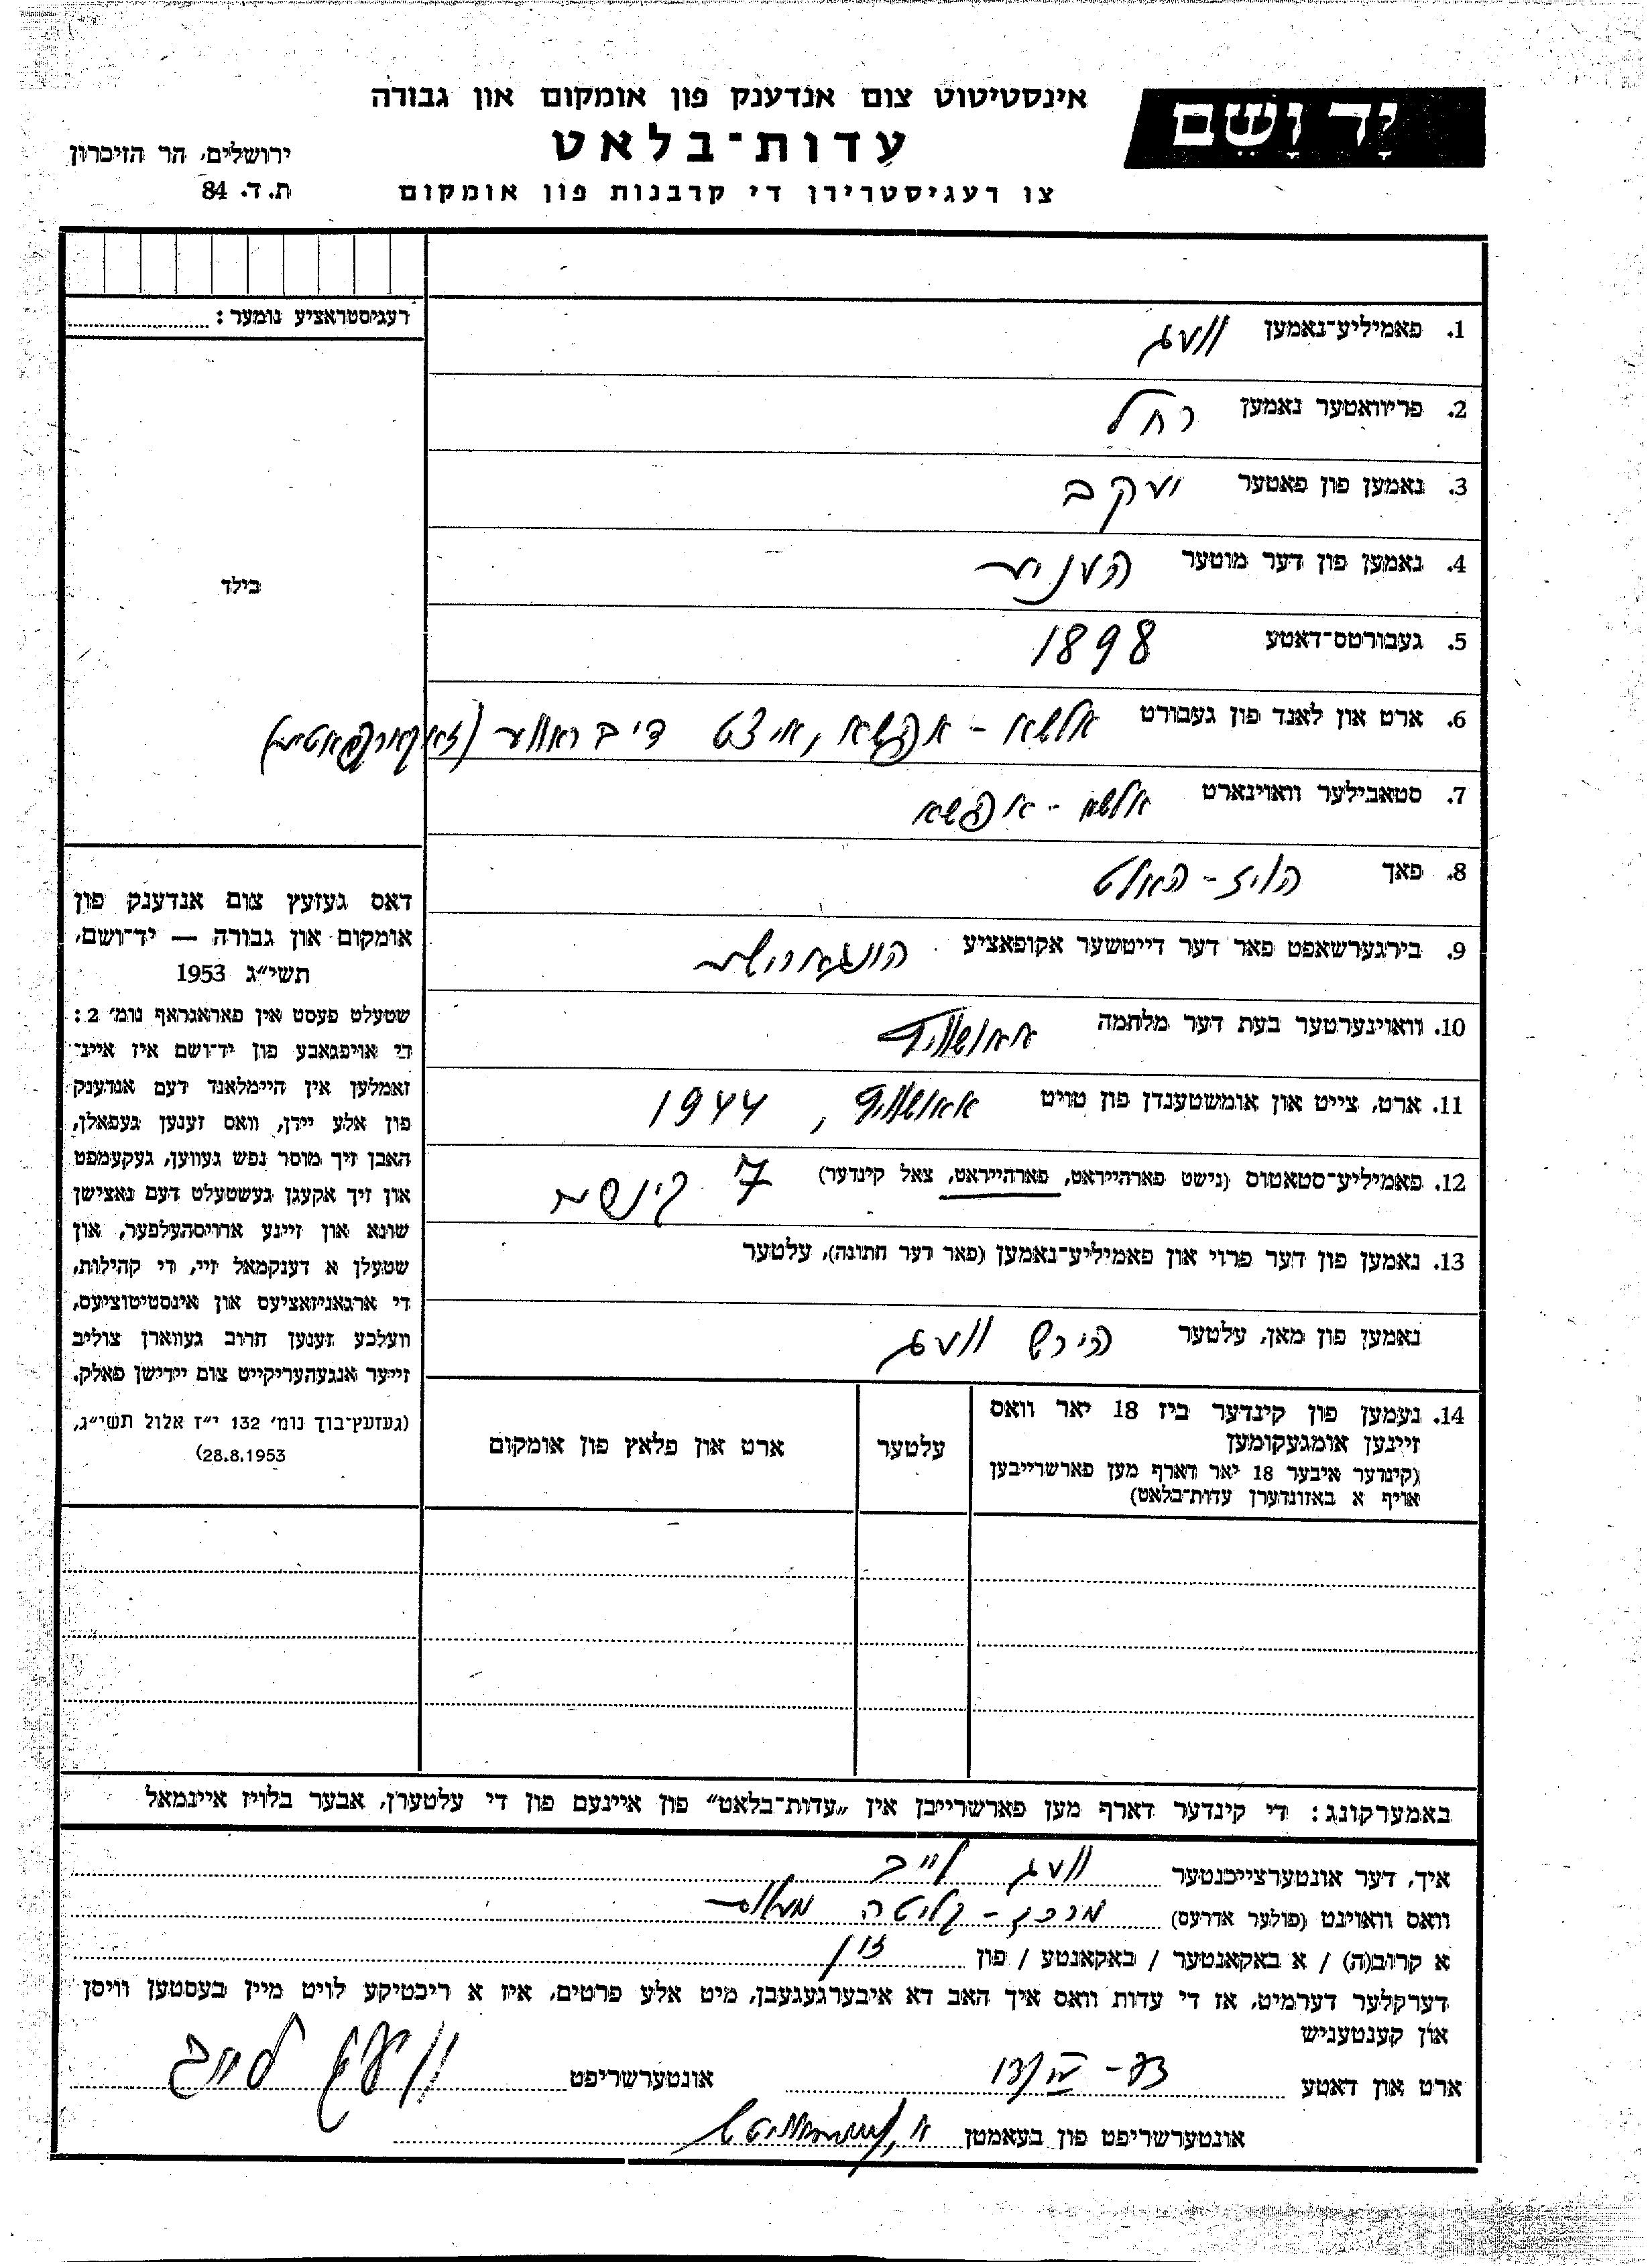 יָד וָשֵׁם
אינסטיטוט צום אנדענק פון אומקום און גבורה
עדות-בלאט
צו רעגיסטרירן די קרבנות פון אומקום
ירושלים, הר הזיכרון
ת. ד. 84
רעגיסטראציע נומער:
בילד
1. פאמיליע-נאמען וועג
2. פריוואטער נאמען רחל
3. נאמען פון פאטער יעקב
4. נאמען פון דער מוטער העניע
5. געבורטס-דאטע 1898
6. ארט און לאנד פון געבורט אלשא - אפשא, איצט דיבראווע (זאקארפאטיע)
7. סטאבילער וואוינארט אלשא - אפשא
8. פאך הויז-האלט
9. בירגערשאפט פאר דער דייטשער אקופאציע הונגארישע
10. וואוינערטער בעת דער מלחמה אאושוויץ
11. ארט, צייט און אומשטענדן פון טויט אאושוויץ, 1944
12. פאמיליע-סטאטוס (נישט פארהייראט, פארהייראט, צאל קינדער) 7
13. נאמען פון דער פרוי און פאמיליע-נאמען (פאר דער חתונה), עלטער
נאמען פון מאן, עלטער הירש וועג
דאס געזעץ צום אנדענק פון
אומקום און גבורה — יד-ושם,
תשי״ג 1953
שטעלט פעסט אין פאראגראף נומ׳ 2:
די אויפגאבע פון יד-ושם איז איינ-
זאמלען אין היימלאנד דעם אנדענק
פון אלע יידן, וואס זענען געפאלן,
האבן זיך מוסר נפש געווען, געקעמפט
און זיך אקעגן געשטעלט דעם נאצישן
שונא און זיינע ארויסהעלפער, און
שטעלן א דענקמאל זיי, די קהילות,
די ארגאניזאציעס און אינסטיטוציעס,
וועלכע זענען חרוב געווארן צוליב
זייער אנגעהעריקייט צום יידישן פאלק.
(געזעץ-בוך נומ׳ 132 י״ז אלול תשי״ג,
28.8.1953)
14. נעמען פון קינדער ביז 18 יאר וואס
זיינען אומגעקומען
(קינדער איבער 18 יאר דארף מען פארשרייבען
אויף א באזונדערן עדות-בלאט)
עלטער
ארט און פלאץ פון אומקום
באמערקונג: די קינדער דארף מען פארשרייבן אין „עדות-בלאט״ פון איינעם פון די עלטערן, אבער בלויז איינמאל
איך, דער אונטערצייכנטער וועג לייב
וואס וואוינט (פולער אדרעס) מרכז-קליטה
א קרוב(ה) / א באקאנטער / באקאנטע / פון זון
דערקלער דערמיט, אז די עדות וואס איך האב דא איבערגעגעבן, מיט אלע פרטים, איז א ריכטיקע לויט מיין בעסטען וויסן
און קענטעניש
ארט און דאטע
אונטערשריפט וועג לייב
אונטערשריפט פון בעאמטן